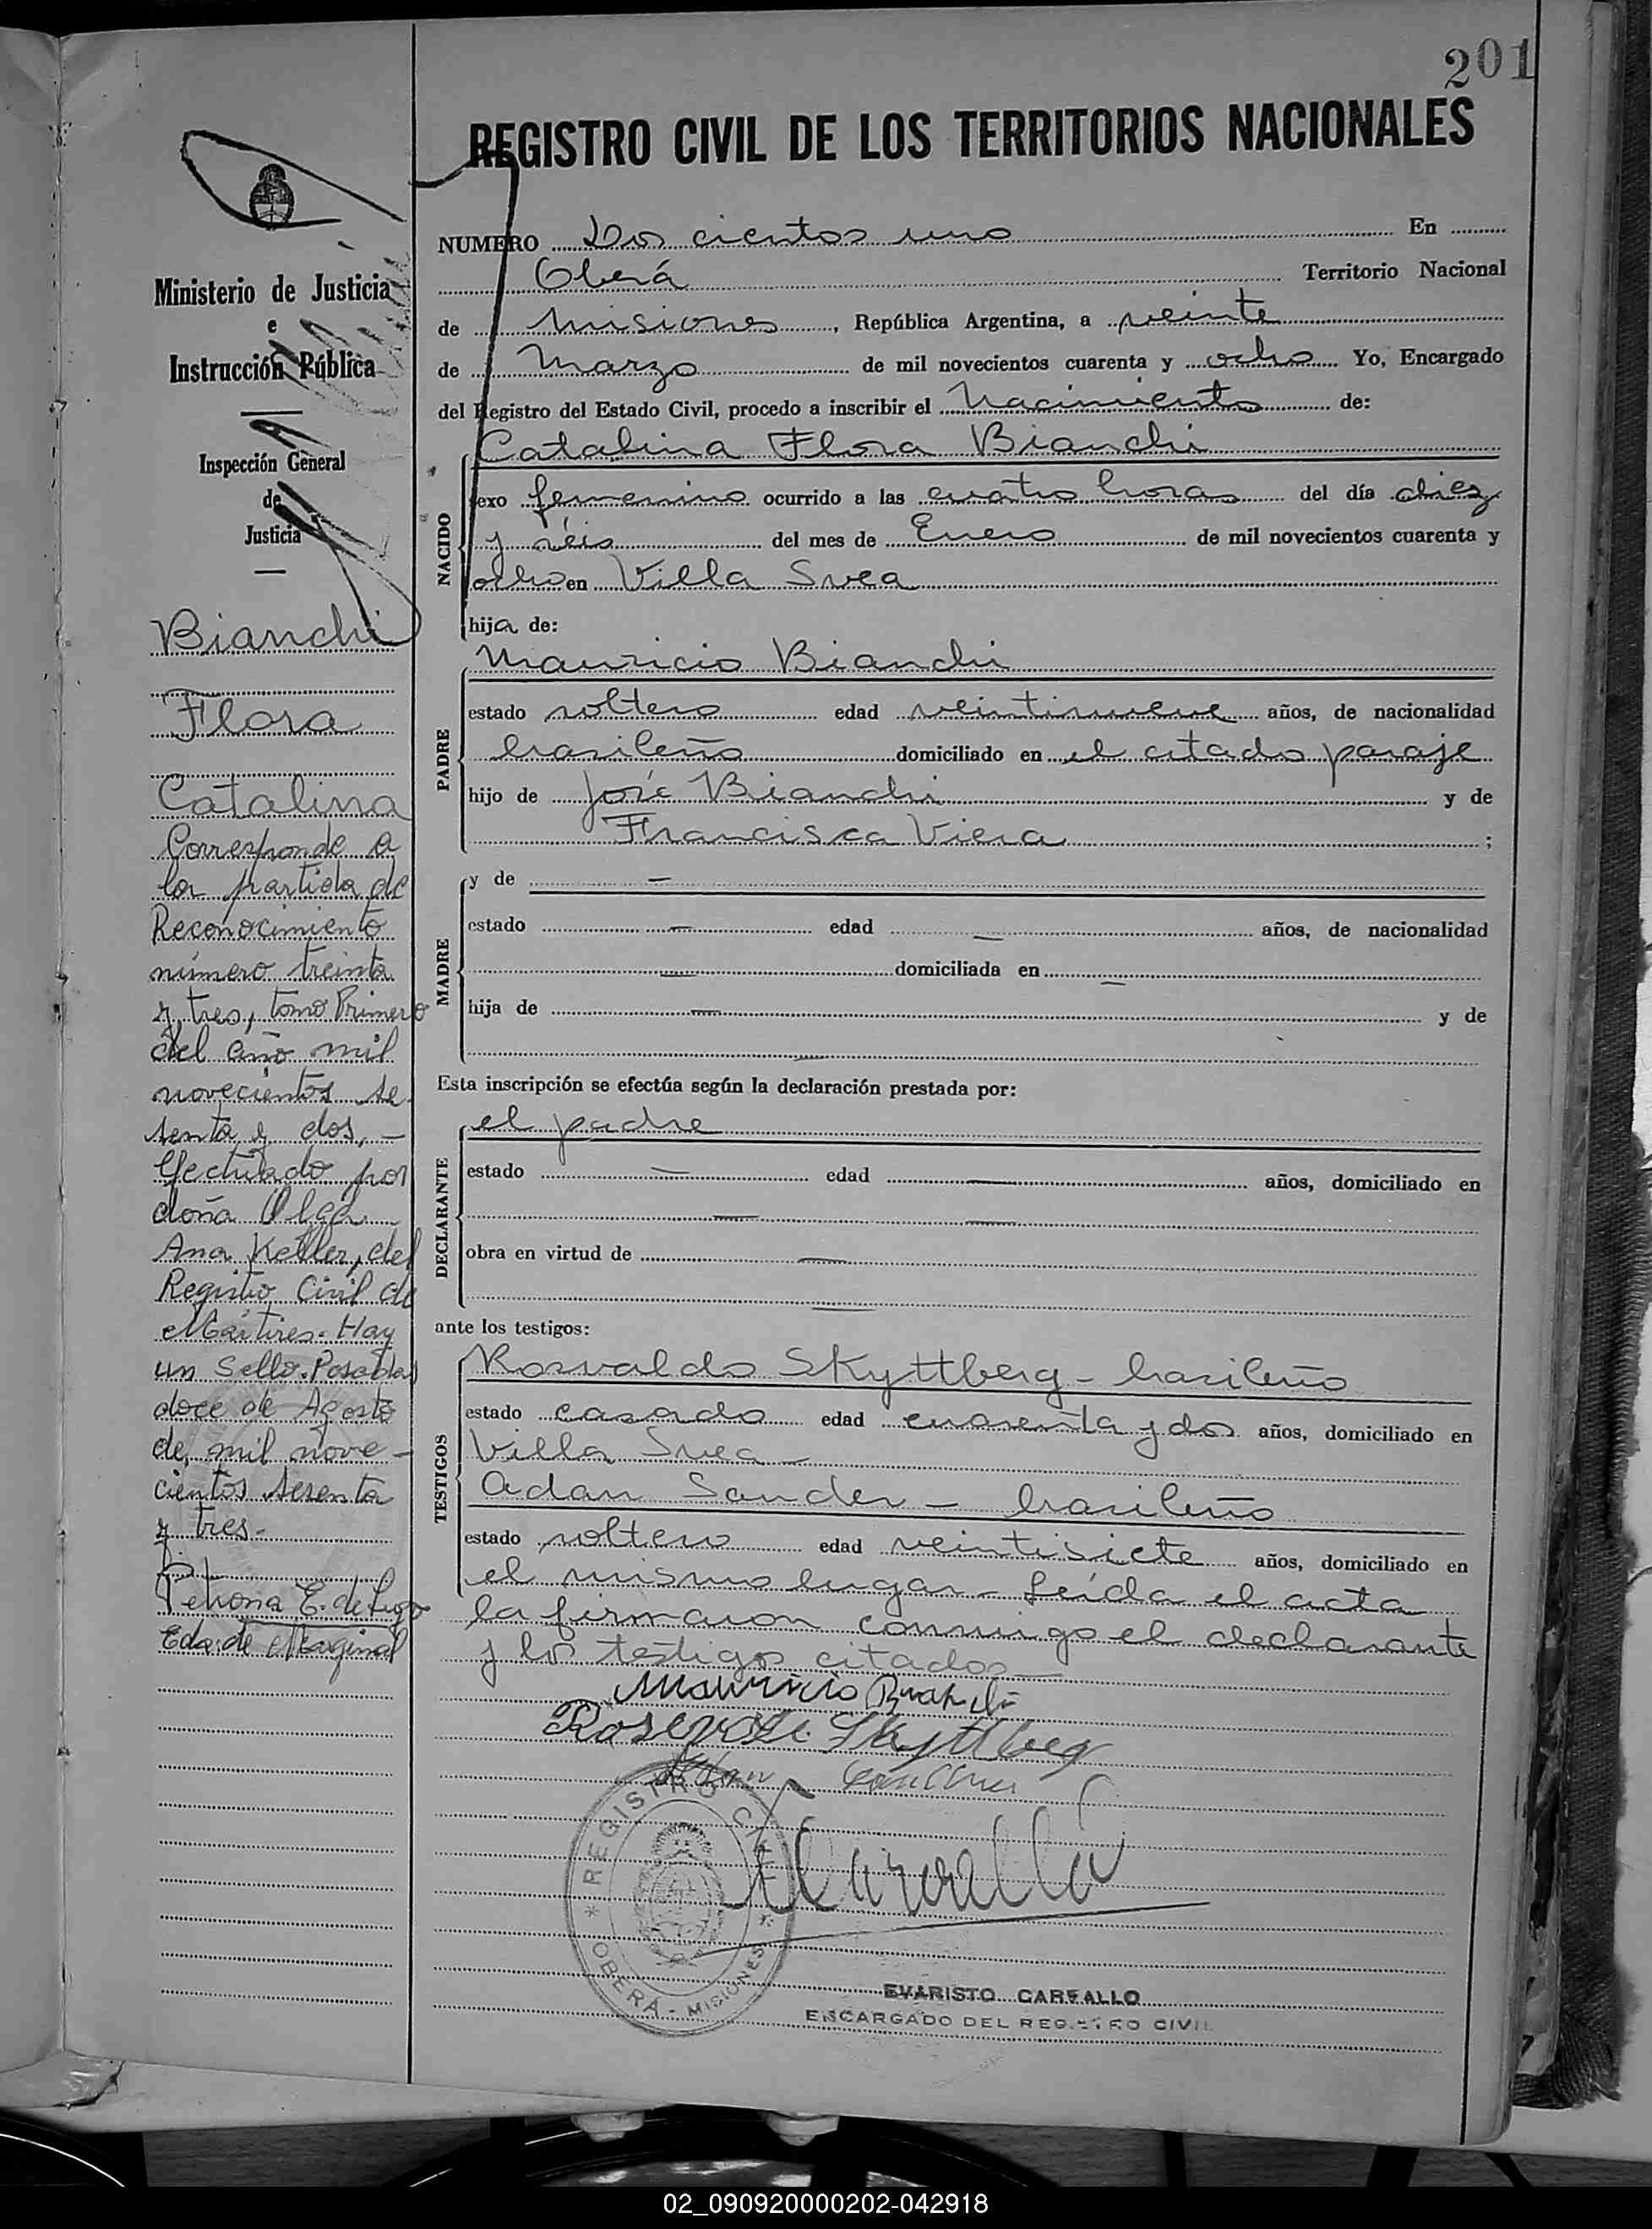 201
REGISTRO CIVIL DE LOS TERRITORIOS NACIONALES
NUMERO Dos cientos uno En
Oberá Territorio Nacional
de Misiones, República Argentina, a veinte
de Marzo de mil novecientos cuarenta y ocho Yo, Encargado
del Registro del Estado Civil, procedo a inscribir el Nacimiento de:
NACIDO
Catalina Flora Bianchi
sexo femenino ocurrido a las cuatro horas del día diez
y séis del mes de Enero de mil novecientos cuarenta y
ocho en Villa Svea
hija de:
PADRE
Mauricio Bianchi
estado soltero edad veintinueve años, de nacionalidad
brasileño domiciliado en el citado paraje
hijo de José Bianchi y de
Francisca Viera ;
MADRE
y de —
estado — edad — años, de nacionalidad
— domiciliada en —
hija de — y de
—
Esta inscripción se efectúa según la declaración prestada por:
DECLARANTE
el padre
estado — edad — años, domiciliado en
— —
obra en virtud de —
—
ante los testigos:
TESTIGOS
Rosvaldo Skyttberg - brasileño
estado casado edad cuarenta y dos años, domiciliado en
Villa Svea -
Adan Sander - brasileño
estado soltero edad veintisiete años, domiciliado en
el mismo lugar - Leída el acta
la firmaron conmigo el declarante
y los testigos citados -
Mauricio Bianchi
Skyttberg
Adan
Carvallo
REGISTRO CIVIL
* OBERÁ - MISIONES *
EVARISTO CARVALLO
ENCARGADO DEL REGISTRO CIVIL
Ministerio de Justicia
e
Instrucción Pública
Inspección General
de
Justicia
Bianchi
Flora
Catalina
Corresponde a
la partida de
Reconocimiento
número treinta
y tres, tomo Primero
del año mil
novecientos se
senta y dos, -
efectuado por
doña Olga
Ana Keller, del
Registro Civil de
Mártires. Hay
un Sello. Posadas
doce de Agosto
de mil nove -
cientos sesenta
y tres -
Petrona E. de Lugo
Eda. de Marginal
02_090920000202-042918